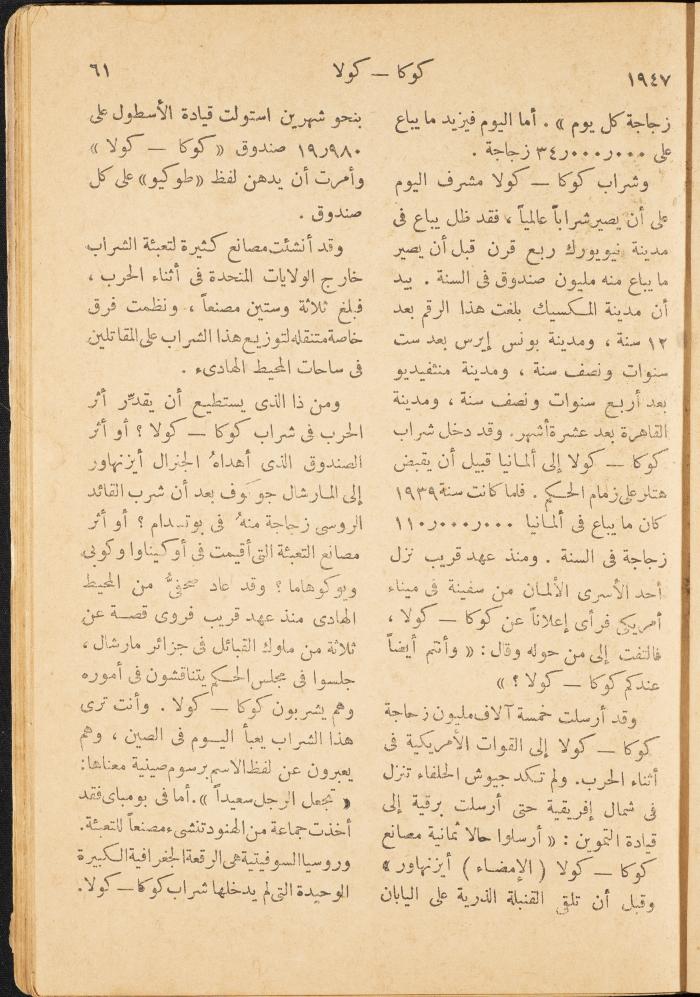 ١٩٤٧
كوكا — كولا
٦١
زجاجة كل يوم » . أما اليوم فيزيد ما يباع
على ٠٠٠ر٠٠٠ر٣٤ زجاجة .
وشراب كوكا — كولا مشرف اليوم
على أن يصير شراباً عالمياً ، فقد ظل يباع فى
مدينة نيويورك ربع قرن قبل أن يصير
ما يباع منه مليون صندوق فى السنة . بيد
أن مدينة المكسيك بلغت هذا الرقم بعد
١٢ سنة ، ومدينة بونس إيرس بعد ست
سنوات ونصف سنة ، ومدينة منتفيديو
بعد أربع سنوات ونصف سنة ، ومدينة
القاهرة بعد عشرة أشهر. وقد دخل شراب
كوكا — كولا إلى ألمانيا قبيل أن يقبض
هتلر على زمام الحكم . فلما كانت سنة ١٩٣٩
كان ما يباع فى ألمانيا ٠٠٠ر٠٠٠ر١١٠
زجاجة فى السنة . ومنذ عهد قريب نزل
أحد الأسرى الألمان من سفينة فى ميناء
أمريكى فرأى إعلاناً عن كوكا — كولا ،
فالتفت إلى من حوله وقال : « وأنتم أيضاً
عندكم كوكا — كولا ؟ »
وقد أرسلت خمسة آلاف مليون زجاجة
كوكا — كولا إلى القوات الأمريكية فى
أثناء الحرب. ولم تكد جيوش الحلفاء تنزل
فى شمال إفريقية حتى أرسلت برقية إلى
قيادة التموين : « أرسلوا حالا ثمانية مصانع
كوكا — كولا ( الإمضاء ) أيزنهاور »
وقبل أن تلقى القنبلة الذرية على اليابان
بنحو شهرين استولت قيادة الأسطول على
٩٨٠ر١٩ صندوق « كوكا — كولا »
وأمرت أن يدهن لفظ «طوكيو» على كل
صندوق .
وقد أنشئت مصانع كثيرة لتعبئة الشراب
خارج الولايات المتحدة فى أثناء الحرب ،
فبلغ ثلاثة وستين مصنعاً ، ونظمت فرق
خاصة متنقله لتوزيع هذا الشراب على المقاتلين
فى ساحات المحيط الهادىء .
ومن ذا الذى يستطيع أن يقدِّر أثر
الحرب فى شراب كوكا — كولا ؟ أو أثر
الصندوق الذى أهداهُ الجنرال أيزنهاور
إلى المارشال جوكوف بعد أن شرب القائد
الروسى زجاجة منهُ فى بوتسدام ؟ أو أثر
مصانع التعبئة التى أقيمت فى أوكيناوا وكوبى
ويوكوهاما ؟ وقد عاد صحفىٌّ من المحيط
الهادى منذ عهد قريب فروى قصة عن
ثلاثة من ملوك القبائل فى جزائر مارشال ،
جلسوا فى مجلس الحكم يتناقشون فى أموره
وهم يشربون كوكا — كولا . وأنت ترى
هذا الشراب يعبأ اليوم فى الصين ، وهم
يعبرون عن لفظ الاسم برسوم صينية معناها:
« تجعل الرجل سعيداً ». أما فى بومباى فقد
أخذت جماعة من الهنود تنشىء مصنعاً للتعبئة.
وروسيا السوفيتية هى الرقعة الجغرافية الكبيرة
الوحيدة التى لم يدخلها شراب كوكا — كولا.